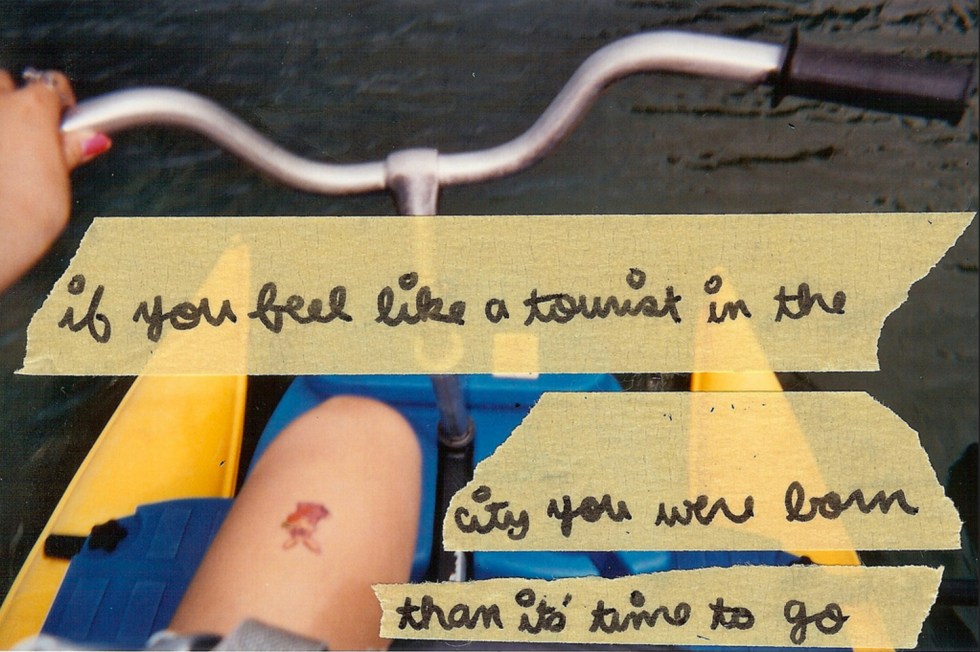 if you feel like a tourist in the
city you were born
than its' time to go